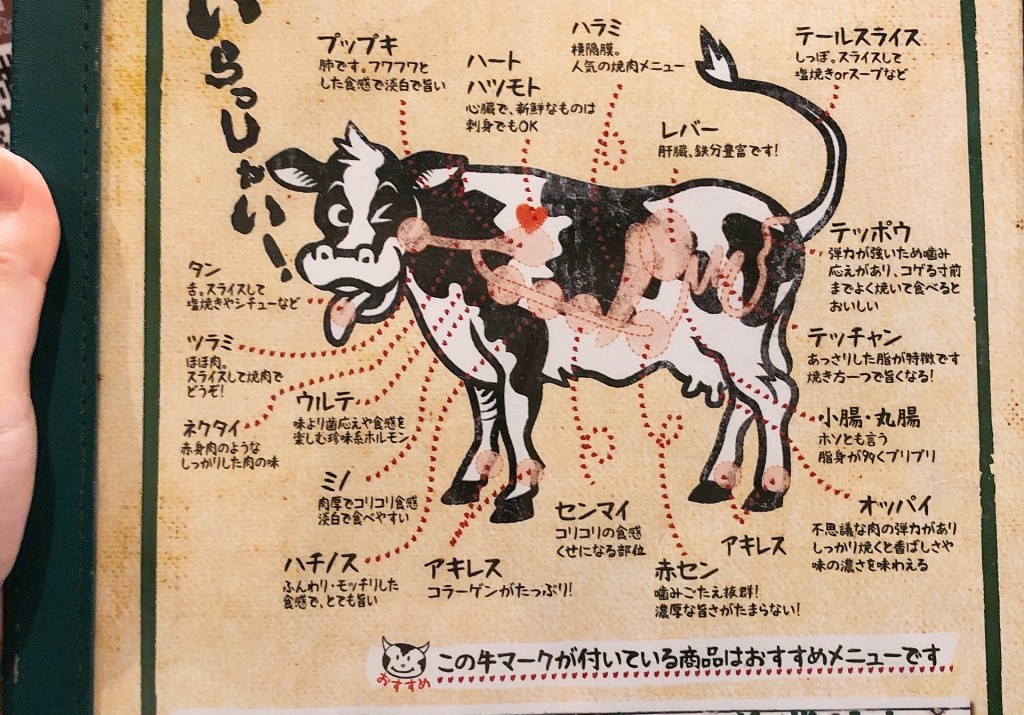 いらっしゃい!
プップキ
肺です。フワフワと
した食感で淡白で旨い
ハート
ハツモト
心臓で、新鮮なものは
刺身でもOK
ハラミ
横隔膜。
人気の焼肉メニュー
テールスライス
しっぽ。スライスして
塩焼きorスープなど
レバー
肝臓、鉄分豊富です!
テッポウ
弾力が強いため噛み
応えがあり、コゲる寸前
までよく焼いて食べると
おいしい
タン
舌。スライスして
塩焼きやシチューなど
ツラミ
ほほ肉。
スライスして焼肉で
どうぞ!
テッチャン
あっさりした脂が特徴です
焼き方一つで旨くなる!
ネクタイ
赤身肉のような
しっかりした肉の味
ウルテ
味より歯応えや食感を
楽しむ珍味系ホルモン
小腸・丸腸
ホソとも言う
脂身が多くプリプリ
ミノ
肉厚でコリコリ食感
淡白で食べやすい
センマイ
コリコリの食感
くせになる部位
オッパイ
不思議な肉の弾力があり
しっかり焼くと香ばしさや
味の濃さを味わえる
ハチノス
ふんわり・モッチリした
食感で、とても旨い
アキレス
コラーゲンがたっぷり!
アキレス
赤セン
噛みごたえ抜群!
濃厚な旨さがたまらない!
おすすめ
この牛マークが付いている商品はおすすめメニューです